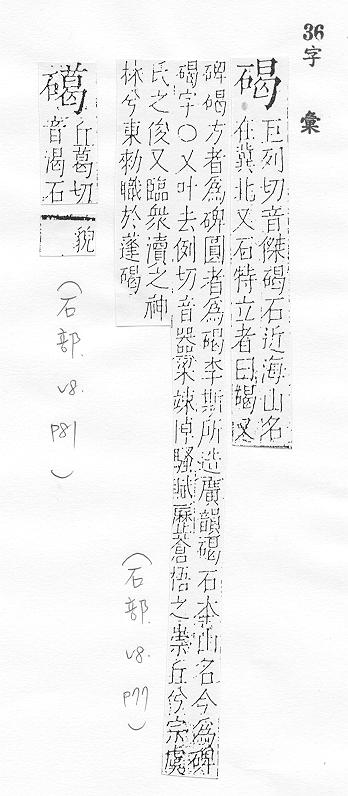 36
字彙
碣
巨列切音傑碣石近海山名
在冀北又石特立者曰碣又
碑碣方者爲碑圓者爲碣李斯所造廣韻碣石本山名今爲碑
碣字〇又叶去例切音器梁竦悼騷賦歷蒼梧之崇丘兮宗虞
氏之俊乂臨衆瀆之神
林兮東勑職於蓬碣
(石部. v8. p77)
礍
丘葛切
音渴石
貌
(石部. v8. p81)